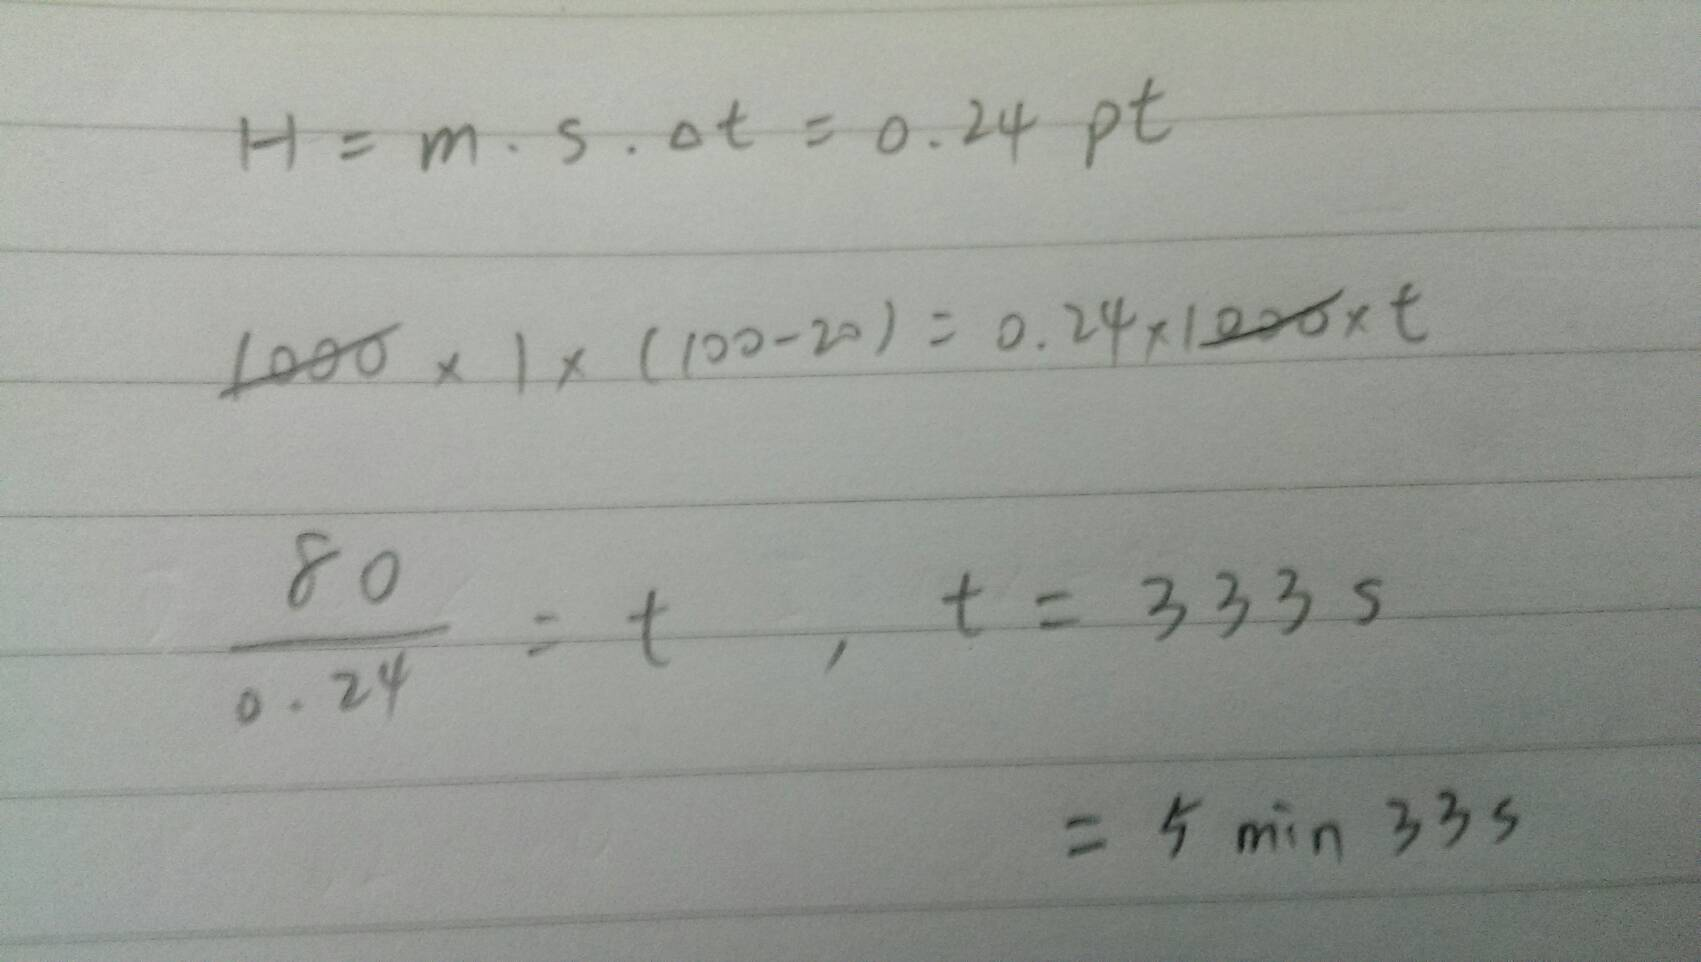 H = m . s . Δt = 0.24 pt
1000 × 1 × (100-20) = 0.24 × 1000 × t
80/0.24 = t , t = 333 s
= 5 min 33 s